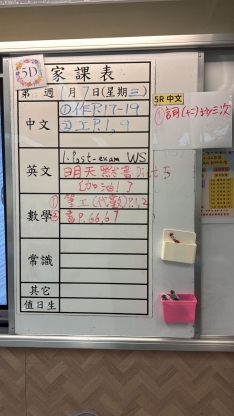 5D
家課表
第 週 1月7日(星期三)
中文
①作P.17-19
②工P.1, 9
英文
1. Post-exam WS
明天默書Dict 5
[加油!]
數學
① 筆工(代數)P.1,2
② 書P.66,67
常識
其它
值日生
5R 中文
①詞(十二)抄三次